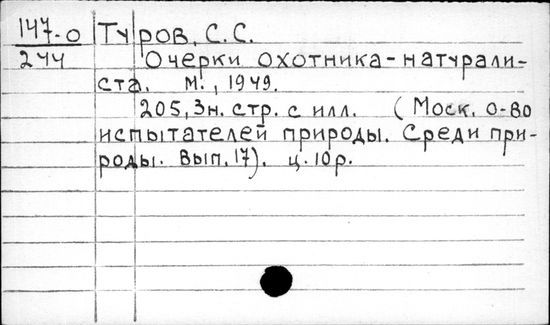 147-0 Туров, С.С.
244 Очерки охотника-натурали-
ста. М., 1949.
205, 3н. стр. с илл. (Моск. о-во
испытателей природы. Среди при-
роды. Вып. 17). ц. 10 р.